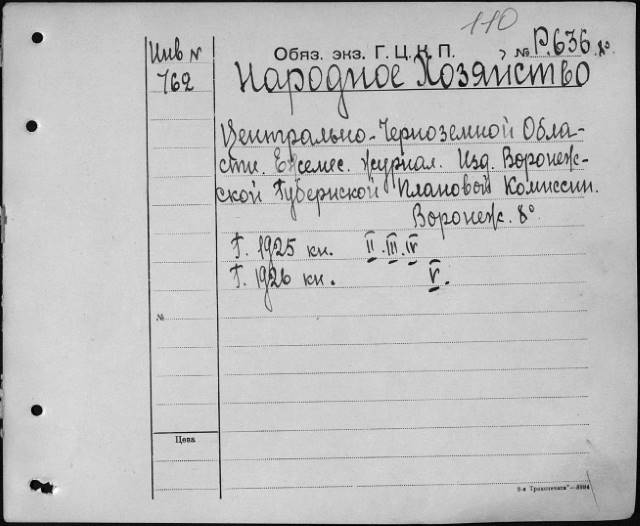 110
Инв № Обяз. экз. Г. Ц. К. П. № Р.636 8°.
762 Народное Хозяйство
Центрально-Черноземной Обла-
сти. Ежемес. журнал. Изд. Воронеж-
ской Губернской Плановой Комиссии.
Воронеж. 8°
Г. 1925 кн. II. III. IV
Г. 1926 кн. V.
№
Цена